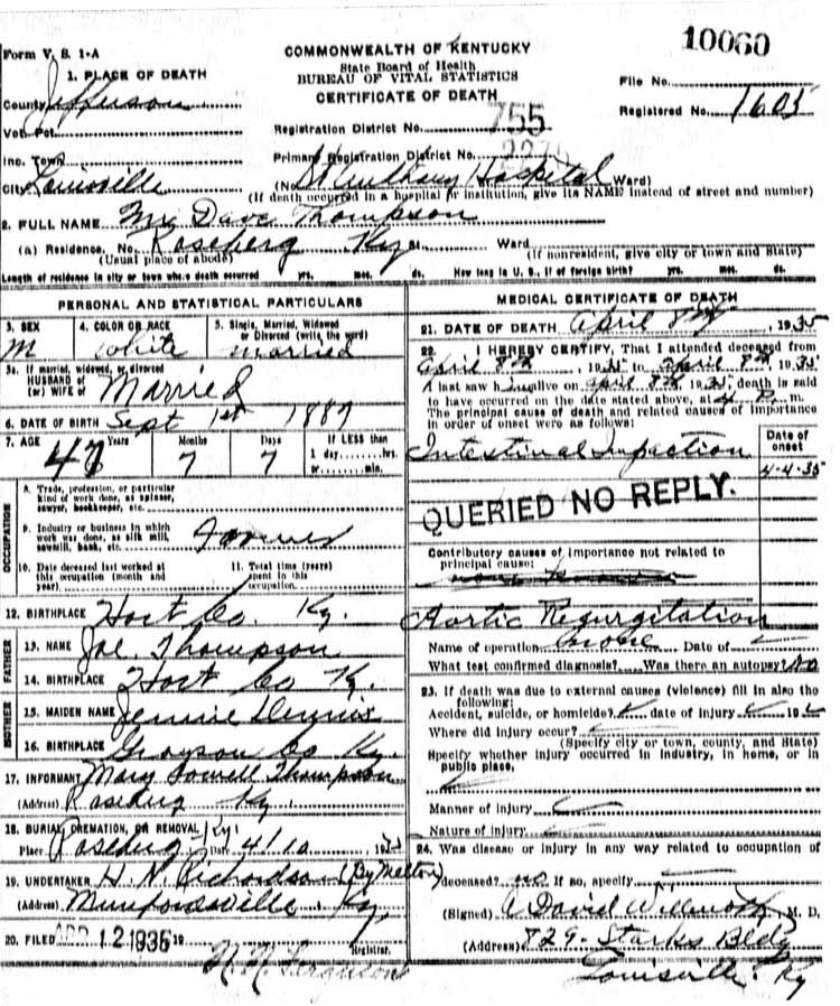 10060
Form V. S. 1-A
COMMONWEALTH OF KENTUCKY
State Board of Health
BUREAU OF VITAL STATISTICS
CERTIFICATE OF DEATH
1. PLACE OF DEATH
File No.
County Jefferson
Registered No. 1605
Vot. Pct.
Registration District No. 755
Inc. Town
Primary Registration District No.
City Louisville
(No. St Anthony Hospital Ward)
(If death occurred in a hospital or institution, give its NAME instead of street and number)
2. FULL NAME Mr Dave Thompson
(a) Residence. No. Roseberg Ky St. Ward
(Usual place of abode)
(If nonresident, give city or town and State)
Length of residence in city or town where death occurred yrs. mos. ds. How long in U. S., if of foreign birth? yrs. mos. ds.
PERSONAL AND STATISTICAL PARTICULARS
3. SEX
M
4. COLOR OR RACE
white
5. Single, Married, Widowed
or Divorced (write the word)
married
5a. If married, widowed, or divorced
HUSBAND of
(or) WIFE of Married
6. DATE OF BIRTH Sept 1st 1887
7. AGE Years Months Days
47 7 7
If LESS than
1 day, hrs.
or min.
OCCUPATION
8. Trade, profession, or particular
kind of work done, as spinner,
sawyer, bookkeeper, etc.
9. Industry or business in which
work was done, as silk mill,
sawmill, bank, etc. Farmer
10. Date deceased last worked at
this occupation (month and
year)
11. Total time (years)
spent in this
occupation
12. BIRTHPLACE Hart Co. Ky.
FATHER
13. NAME Joe Thompson
14. BIRTHPLACE Hart Co Ky.
MOTHER
15. MAIDEN NAME Jennie Dennis
16. BIRTHPLACE Grayson Co Ky.
17. INFORMANT Mary Thompson
(Address) Roseberg Ky
18. BURIAL, CREMATION, OR REMOVAL Ky
Place Roseberg Date 4/10, 1935
19. UNDERTAKER H. N. Richardson (By Melton)
(Address) Munfordsville Ky
20. FILED APR 12 1935 19
Registrar.
N. N. Ferguson
MEDICAL CERTIFICATE OF DEATH
21. DATE OF DEATH April 8th, 1935
22. I HEREBY CERTIFY, That I attended deceased from
April 8th, 1935 to April 8th, 1935
I last saw him alive on April 8th, 1935, death is said
to have occurred on the date stated above, at 4 P. m.
The principal cause of death and related causes of importance
in order of onset were as follows:
Date of
onset
Intestinal Impaction
4-4-35
QUERIED NO REPLY.
Contributory causes of importance not related to
principal cause:
Aortic Regurgitation
Name of operation none Date of
What test confirmed diagnosis? Was there an autopsy? No
23. If death was due to external causes (violence) fill in also the
following:
Accident, suicide, or homicide? date of injury 19
Where did injury occur?
(Specify city or town, county, and State)
Specify whether injury occurred in industry, in home, or in
public place,
Manner of injury
Nature of injury
24. Was disease or injury in any way related to occupation of
deceased? no If so, specify
(Signed) David Willmoth, M. D.
(Address) 829 - Starks Bldg
Louisville Ky